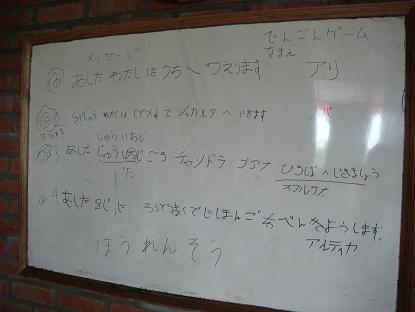 でんごんゲーム
メッセージ
なまえ
あした わたし は うち へ かえります
アリ
らいしゅう わたし は て ジャカルタ へ いきます
はなまる
じゅういちじ
3 あした じゅう じ ごろ チャンドラ ひろば へ いきましょう
た
スカルサナ
4 あした 8じ に で にほんご を べんきょうします。
アルティカ
ほうれんそう